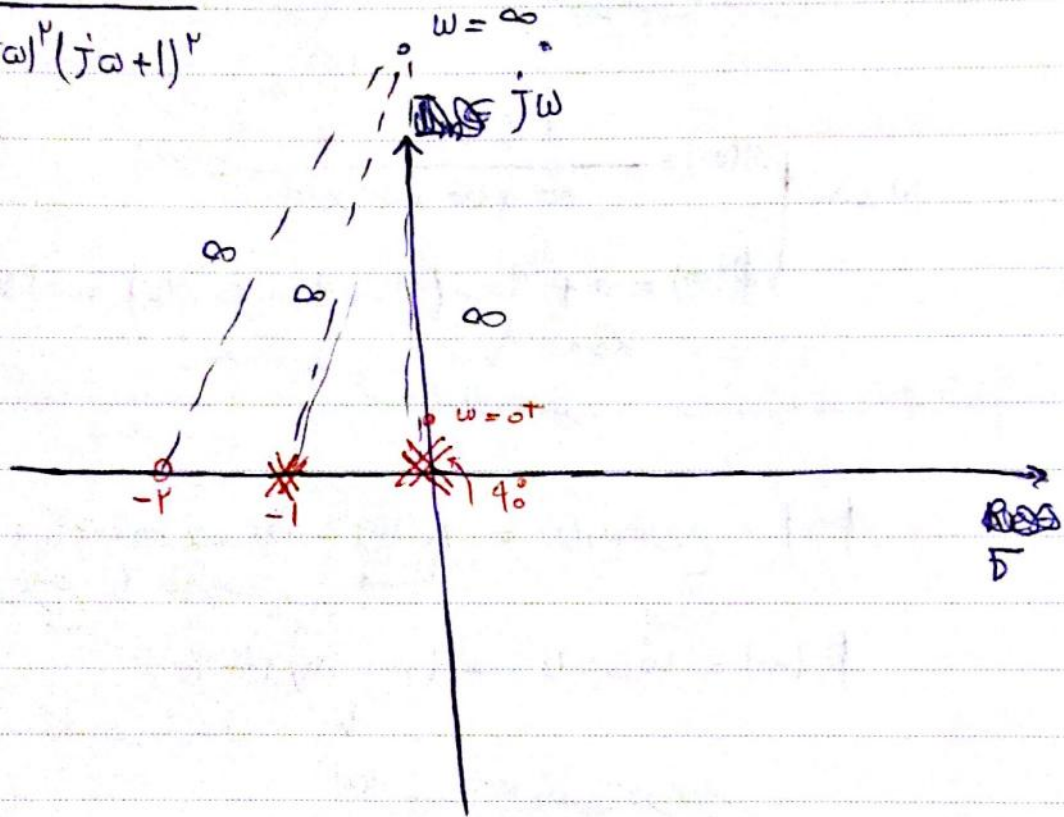 ω)²(jω+1)²
ω = ∞
jω
∞
∞
∞
ω = 0⁺
-۲
-1
9۰°
σ